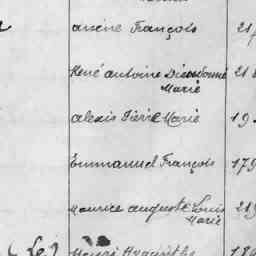 arsène François 21
René antoine Dieudonné 21
Marie
alexis Pierre Marie 19
Emmanuel François 179
Maurice auguste Louis 219
Marie
(Le) Henri Hyacinthe 18